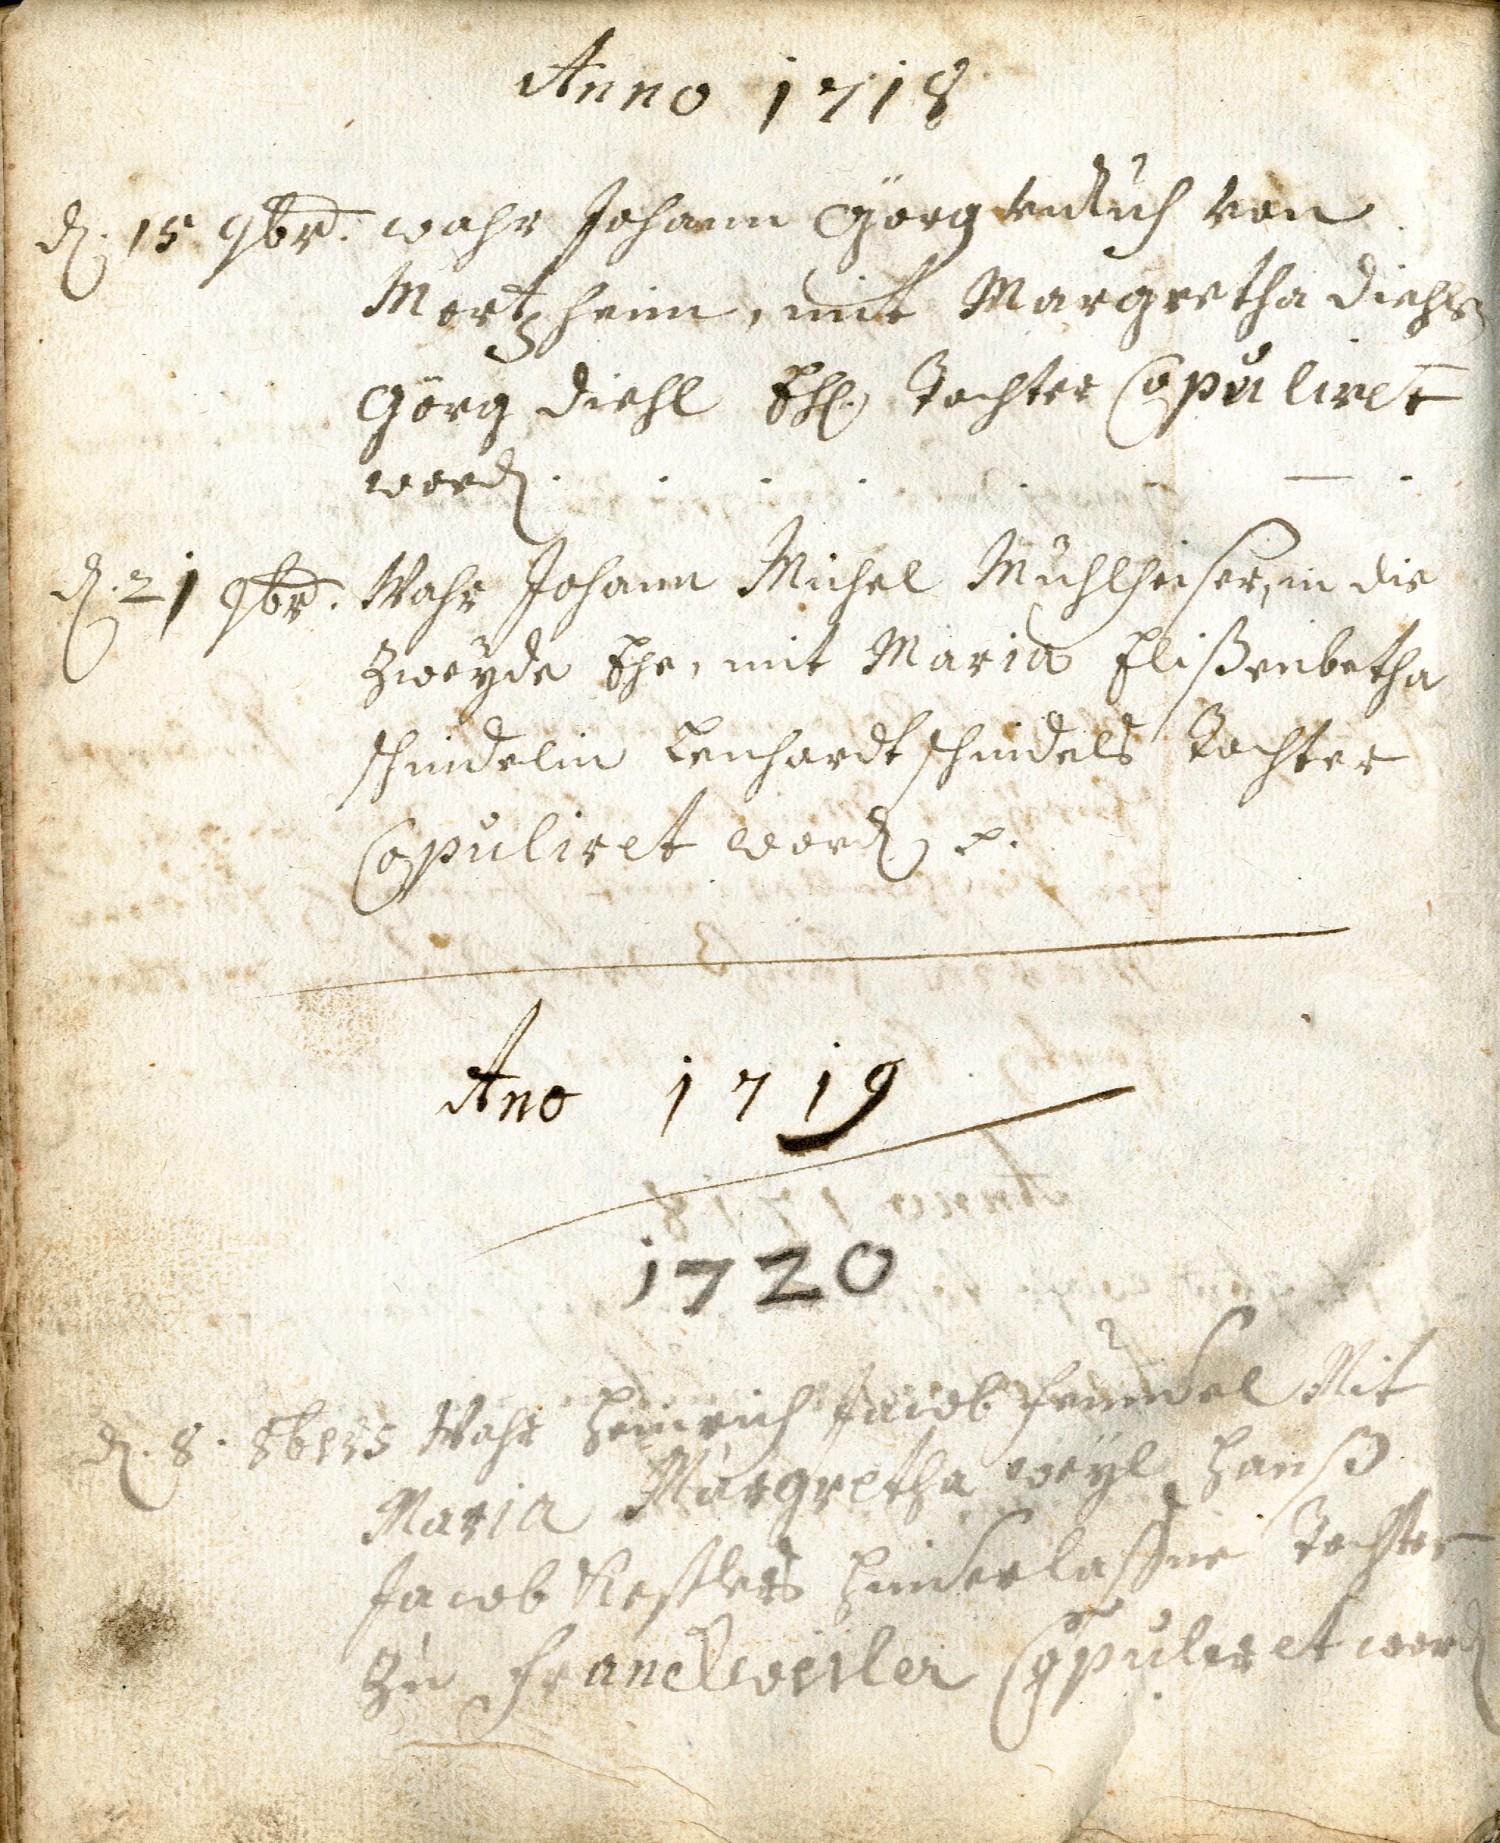 Anno 1718
d. 15 9br. wahr Johann Görg von
Mortzheim, mit Margretha Diehls
Görg Diehl Ehl. Tochter Copuliret
word.
d. 21 9br. Wahr Johann Michel Mühlheiser, in die
Zweyde Ehe, mit Maria Elißenbetha
schindelin Lenhardt schindels Tochter
Copuliret word.
Ano 1719
1720
d. 8. 8bris Wahr Heinrich Jacob Mit
Maria Margretha weyl. Hanß
Jacob Keßlers hinderlaßne Tochter
Zu Franckweiler Copuliret word